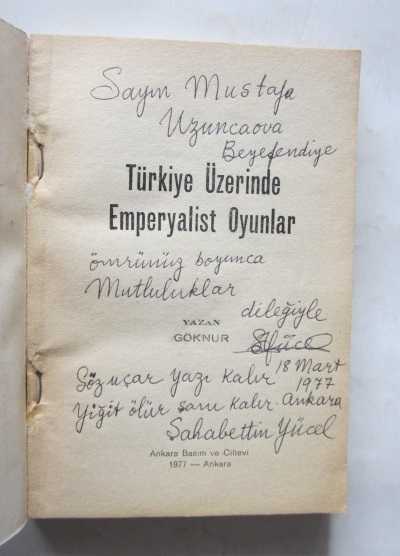 Sayın Mustafa
Uzuncaova
Beyefendiye
Türkiye Üzerinde
Emperyalist Oyunlar
ömrünüz boyunca
Mutluluklar
dileğiyle
YAZAN
GÖKNUR
SYücel
18 Mart
1977
Söz uçar yazı kalır
Yiğit ölür şanı kalır. Ankara
Şahabettin Yücel
Ankara Basım ve Ciltevi
1977 — Ankara